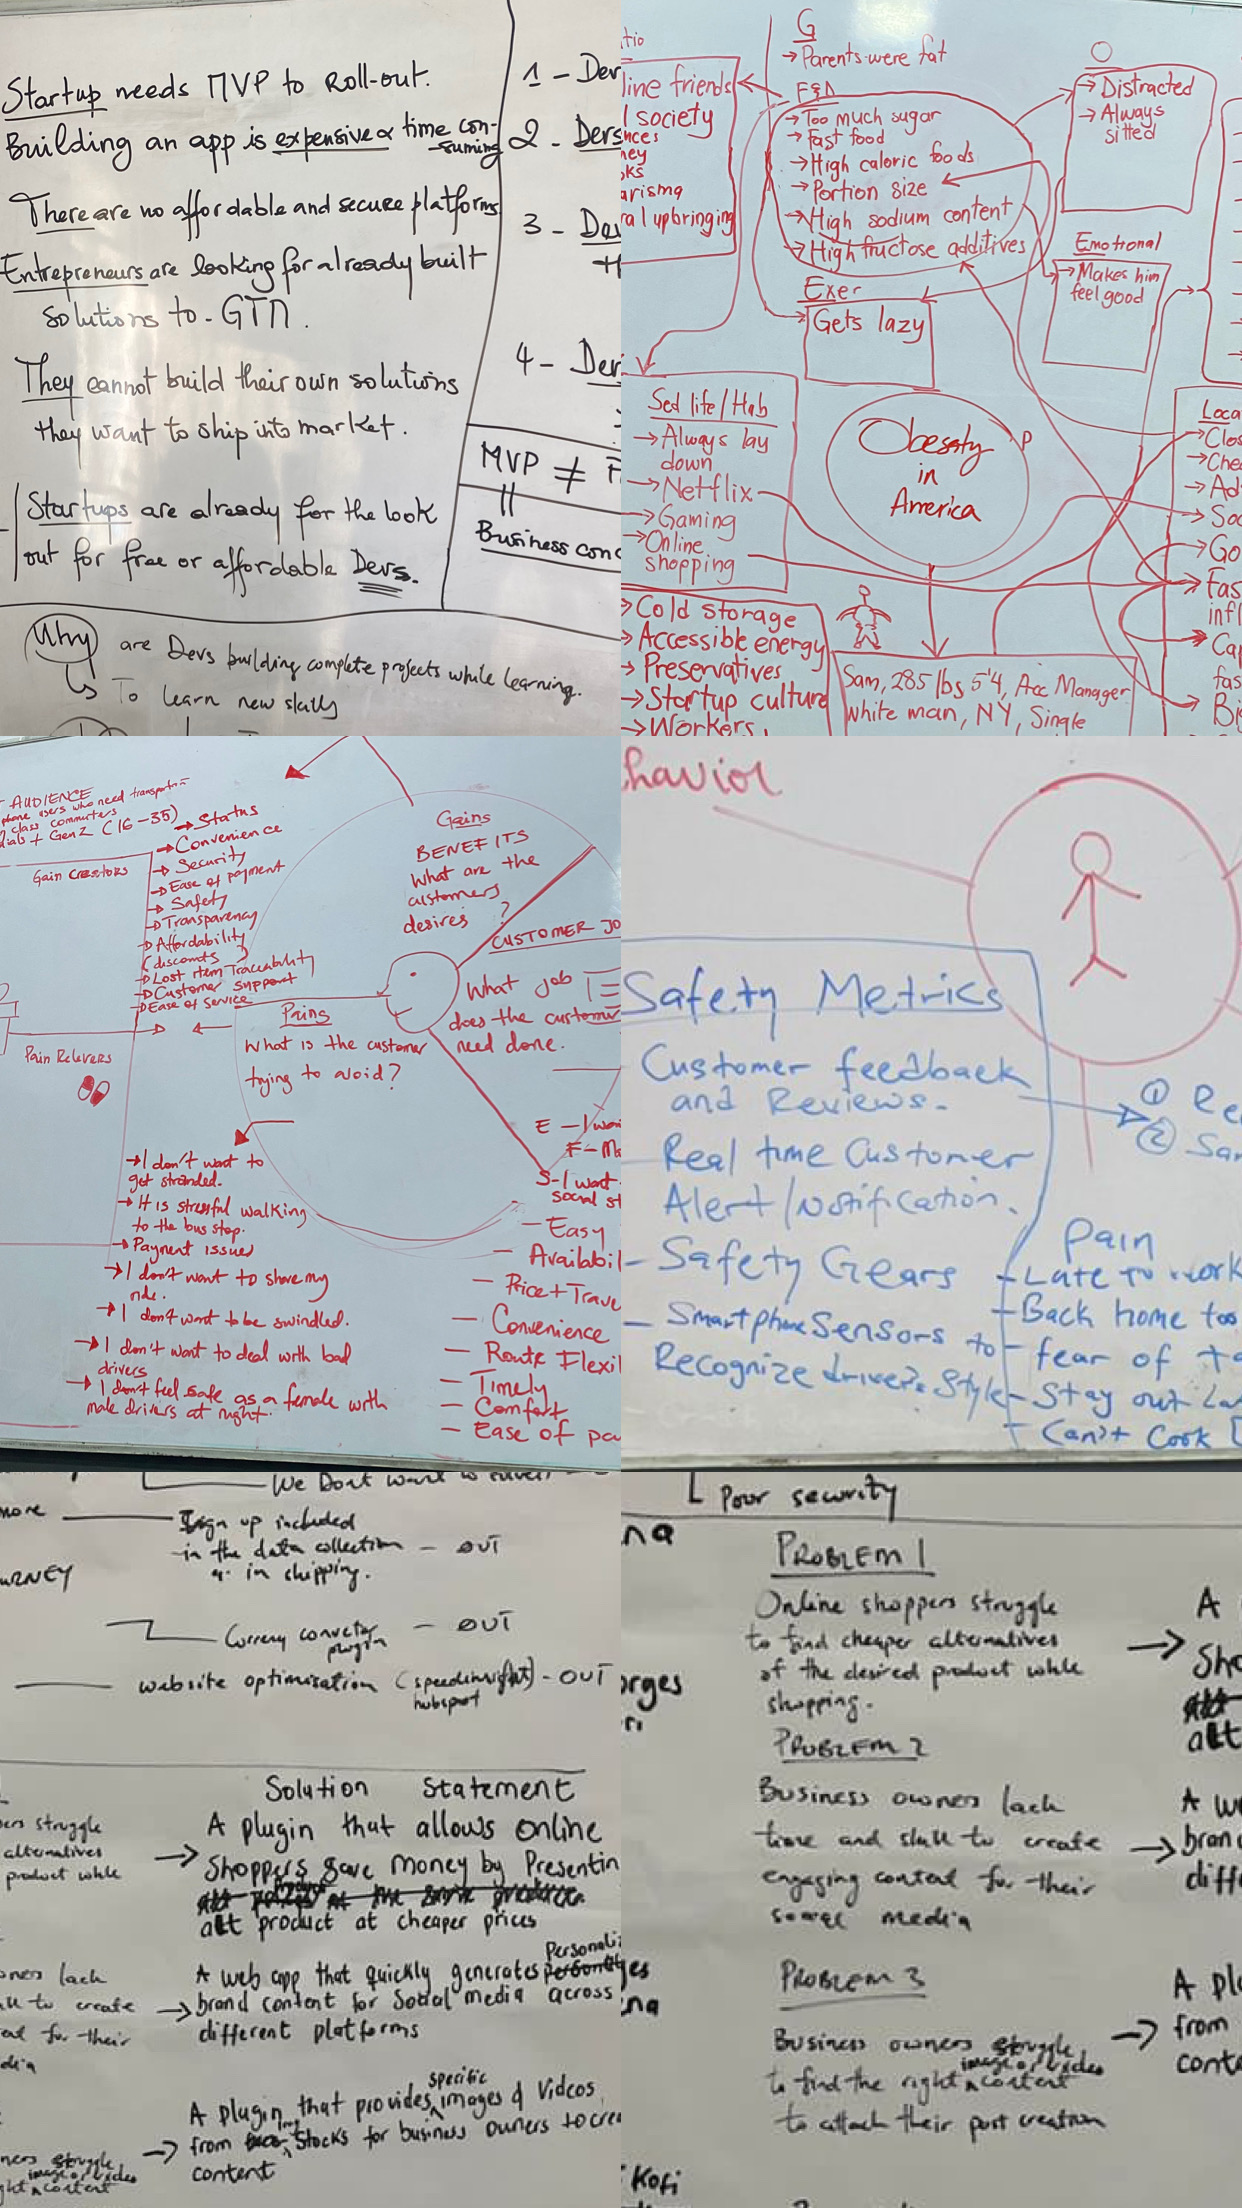 Startup needs MVP to Roll-out.
Building an app is expensive & time con-
suming
There are no affordable and secure platforms
Entrepreneurs are looking for already built
solutions to - GTM.
They cannot build their own solutions
they want to ship into market.
Startups are already for the look
out for free or affordable Devs.
Why are Devs building complete projects while learning.
To learn new skills
1 - Dev
2 - Devs
3 - Dev
4 - Dev
MVP ≠ F
Business conc
G
→ Parents were fat
tio
line friends
l society
nces
ney
oks
arisma
ral upbringing
F&D
→ Too much sugar
→ Fast food
→ High caloric foods
→ Portion size
→ High sodium content
→ High fructose additives
O
→ Distracted
→ Always
sitted
Emotional
→ Makes him
feel good
Exer
Gets lazy
Sed life/Hab
→ Always lay
down
→ Netflix
→ Gaming
→ Online
shopping
Obesity
in
America
P
Loca
→ Clos
→ Che
→ Ad
→ Soc
→ Go
→ Fas
infl
→ Cap
fas
→ Bi
→ Cold storage
→ Accessible energy
→ Preservatives
→ Startup culture
→ Workers.
Sam, 285 lbs 5'4, Acc Manager
White man, NY, Single
AUDIENCE
phone users who need transport
class commuters
ials + Gen Z (16-35)
Gain creators
→ Status
→ Convenience
→ Security
→ Ease of payment
→ Safety
→ Transparency
→ Affordability
(discounts)
→ Lost item Traceability
→ Customer support
→ Ease of service
Gains
BENEFITS
What are the
customers
desires?
CUSTOMER JO
What job
does the customer
need done.
Pains
What is the customer
trying to avoid?
Pain Relievers
→ I don't want to
get stranded.
→ It is stressful walking
to the bus stop.
→ Payment issued
→ I don't want to share my
ride.
→ I don't want to be swindled.
→ I don't want to deal with bad
drivers
→ I don't feel safe as a female with
male drivers at night.
E - I wan
F - Ma
S - I want
social st
- Easy
- Availabil
- Price + Trave
- Convenience
- Route Flexil
- Timely
- Comfort
- Ease of pa
havior
Safety Metrics
Customer feedback
and Reviews.
Real time Customer
Alert/Notification.
- Safety Gears
- Smartphone Sensors to
Recognize drivers Style
① Re
② Sam
Pain
- Late to work
- Back home too
- fear of ta
- Stay out La
- Can't Cook
We Dont want to
more
Sign up included
in the data collection - OUT
in shipping.
URNEY
Currency convertor - OUT
plugin
website optimisation (speed insight) - OUT
hubspot
Solution Statement
ers struggle
alternatives
product while
A plugin that allows online
Shoppers save money by Presentin
alt product at cheaper prices
Personali
ners lack
ll to create
ent for their
dia
A web app that quickly generates
brand content for Social media across
different platforms
specific
A plugin that provides images & Videos
from Stocks for business owners to crea
content
ners struggle
image or video
ght content
L Poor security
na
PROBLEM 1
Online shoppers struggle
to find cheaper alternatives
of the desired product while
shopping.
A
Sho
alt
orges
ri
PROBLEM 2
Business owners lack
time and skill to create
engaging content for their
social media
A we
bran
diff
ges
na
PROBLEM 3
Business owners struggle
image or video
to find the right content
to attach their post creation
A pl
from
conte
Kofi